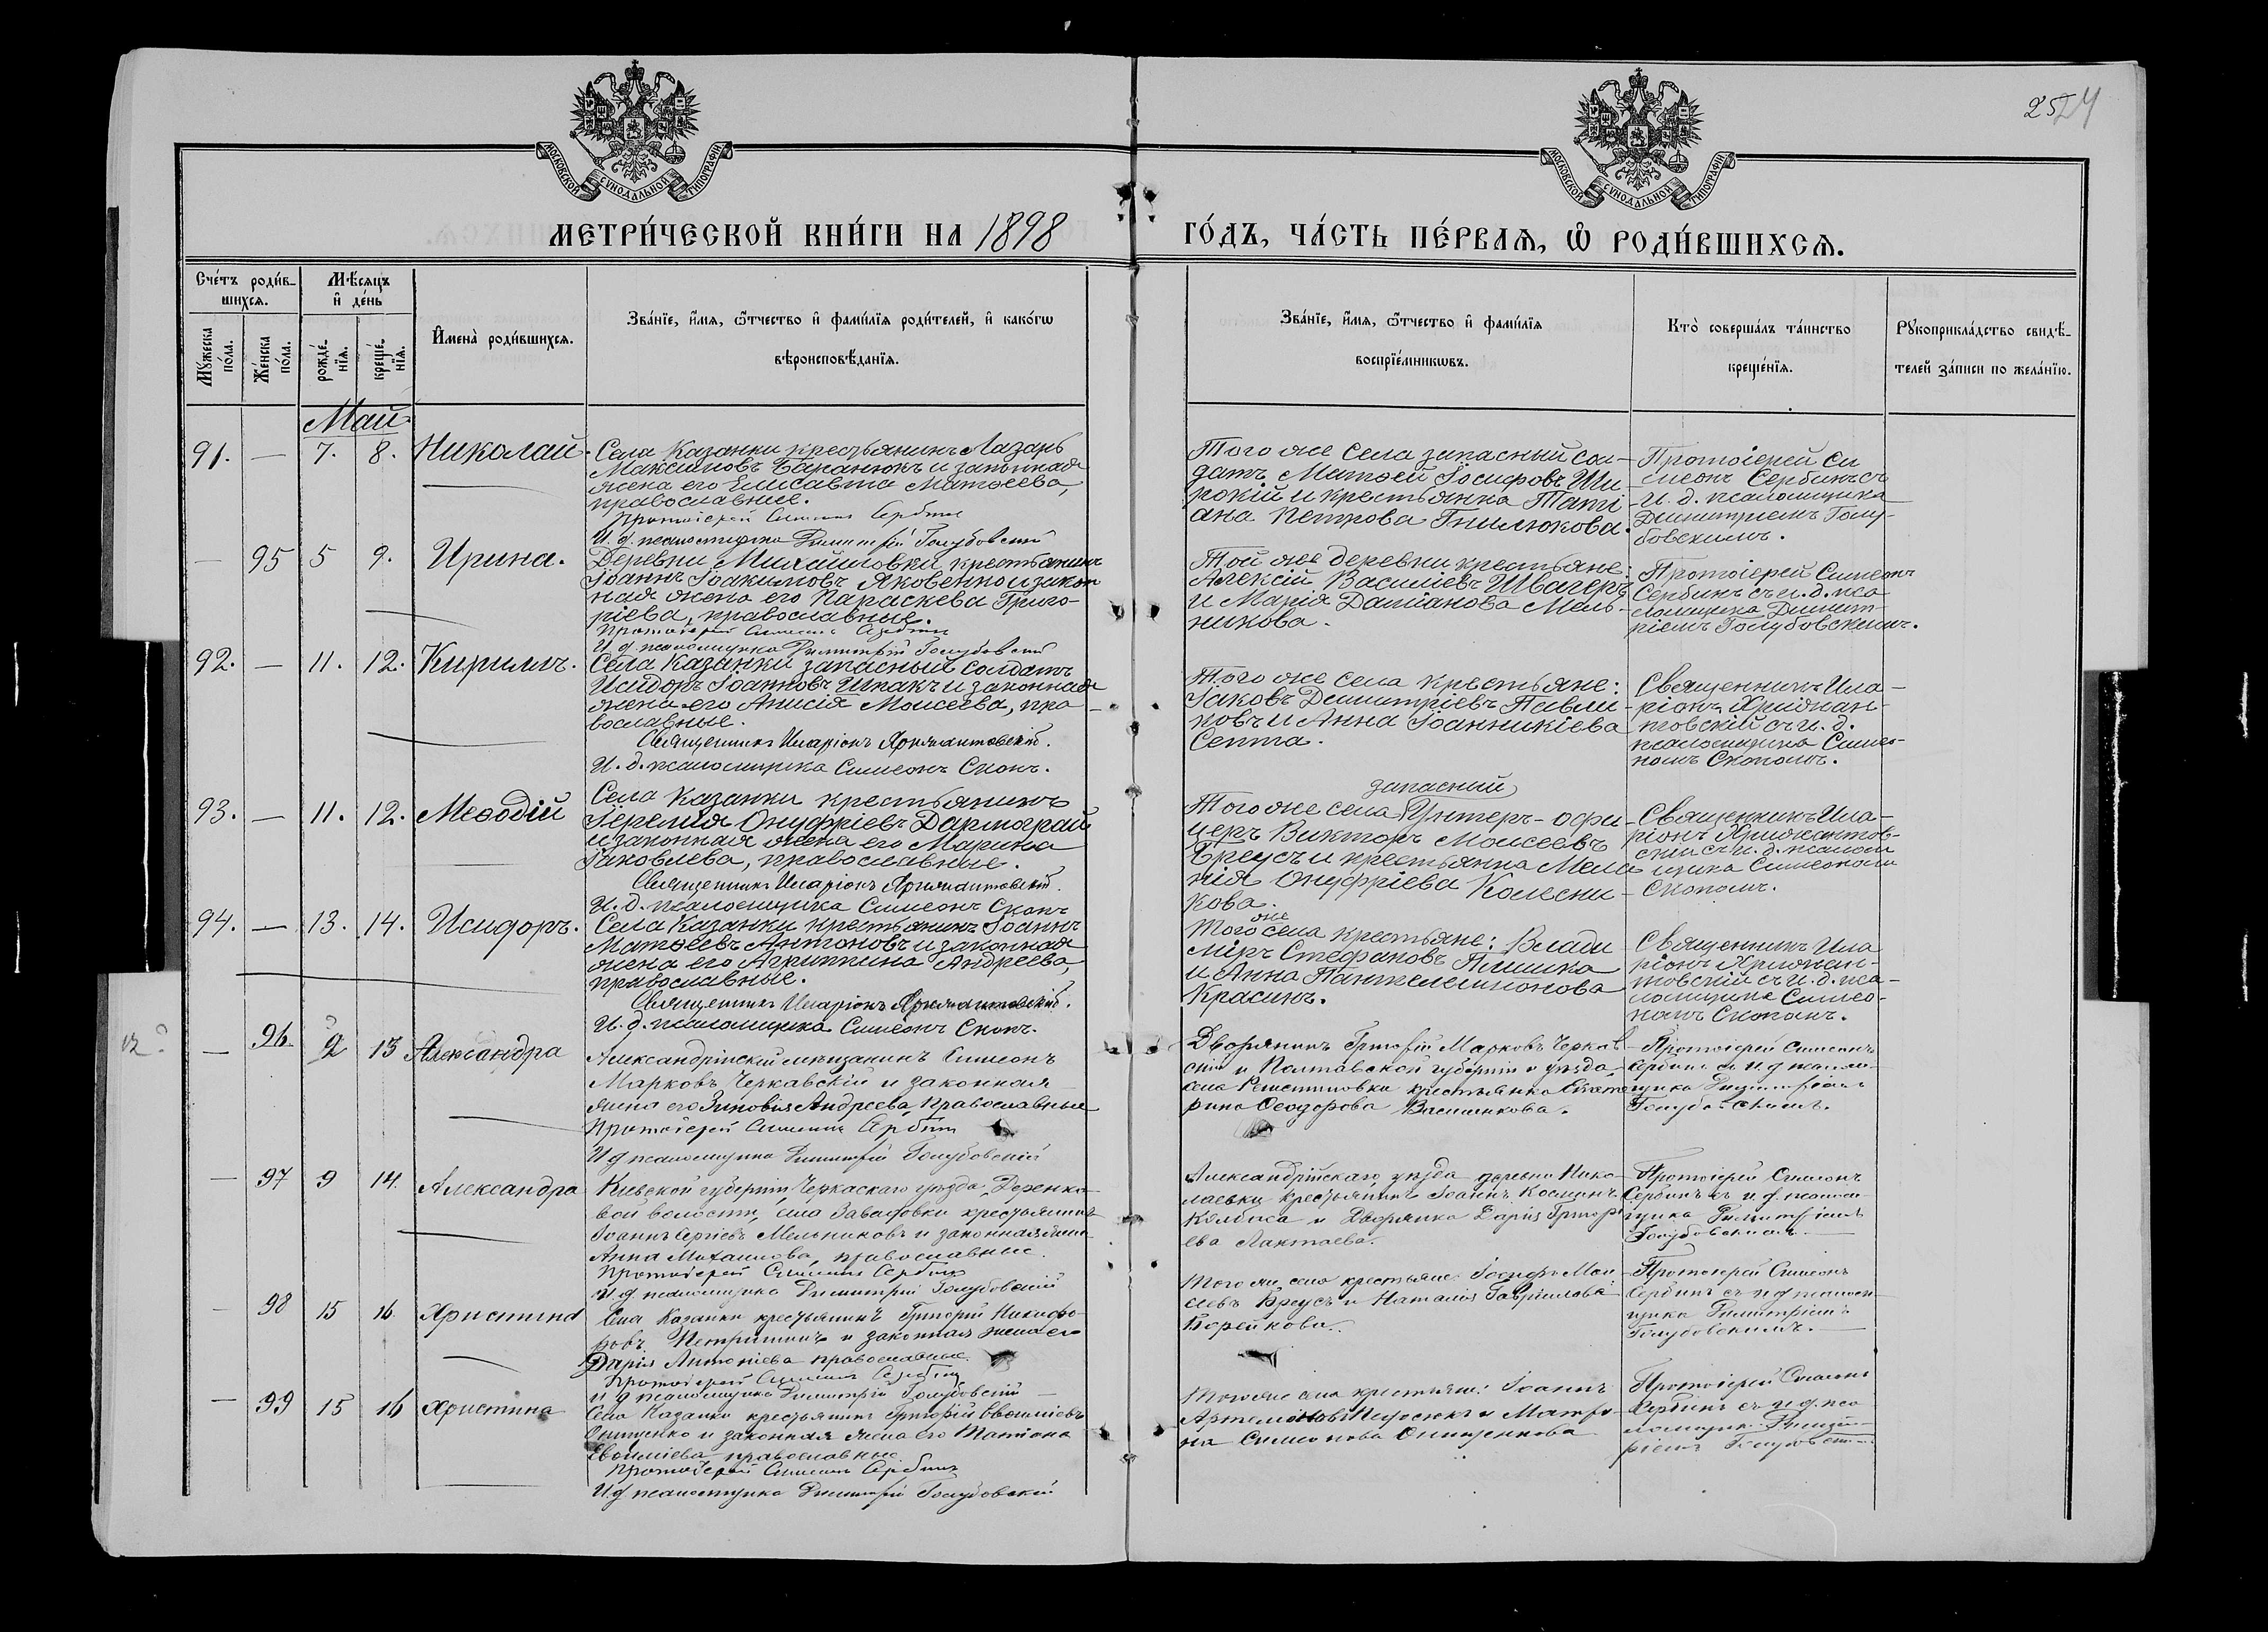 2524
МОСКОВСКОЙ СѴНОДАЛЬНОЙ ТИПОГРАФІИ
МОСКОВСКОЙ СѴНОДАЛЬНОЙ ТИПОГРАФІИ
МЕТРИ́ЧЕСКОЙ КНИ́ГИ НА 1898
ГО́ДЪ, ЧА́СТЬ ПЕ́РВАѦ, Ѡ҆ РОДИ́ВШИХСѦ.
Сче́тъ роди́в-
шихсѧ.
Мѣ́сяцъ
и҆ де́нь
Мꙋ́жеска
по́ла.
Же́нска
по́ла.
рожде́-
нїѧ.
креще́-
нїѧ.
И҆мена̀ роди́вшихсѧ.
Зва́нїе, и҆́мѧ, ѻ҆́тчество и҆ фами́лїѧ роди́телей, и҆ како́гѡ
вѣроисповѣ́данїѧ.
Зва́нїе, и҆́мѧ, ѻ҆́тчество и҆ фами́лїѧ
воспрїе́мникѡвъ.
Кто̀ соверша́лъ та́инство
креще́нїѧ.
Рꙋкоприкла́дство свидѣ́-
телей за́писи по жела́нїю.
Май
91. — 7. 8. Николай.
Села Казанки крестьянинъ Лазарь
Максимовъ Баранюкъ и законная
жена его Елисавета Матѳеева,
православные.
Протоіерей Симеонъ Сербинъ
И. д. псаломщика Димитрій Голубовскій
Того же села запасный сол-
датъ Матѳей Іосифовъ Ши-
рокій и крестьянка Тати-
ана Петрова Гнилюкова.
Протоіерей Си
меонъ Сербинъ съ
и. д. псаломщика
Димитріемъ Голу-
бовскимъ.
— 95 5 9. Ирина.
Деревни Михайловки крестьянинъ
Іоаннъ Іоакимовъ Яковенко и закон
ная жена его Параскева Григо-
ріева, православные.
Протоіерей Симеонъ Сербинъ
И. д. псаломщика Димитрій Голубовскій
Той же деревни крестьяне:
Алексій Василіевъ Швагеръ
и Марія Даміанова Мель-
никова.
Протоіерей Симеонъ
Сербинъ съ и. д. пса
ломщика Димит-
ріемъ Голубовскимъ.
92. — 11. 12. Кириллъ.
Села Казанки запасный солдатъ
Исидоръ Іоанновъ Шпакъ и законная
жена его Анисія Моисеева, пра
вославные.
Священникъ Иларіонъ
И. д. псаломщика Симеонъ Скопъ.
Того же села крестьяне:
Іаковъ Димитріевъ Павли-
ковъ и Анна Іоанникіева
Септа.
Священникъ Ила-
ріонъ
съ и. д.
псаломщика Симео-
номъ Скопомъ.
93. — 11. 12. Меѳодій
Села Казанки крестьянинъ
Іеремія Онуфріевъ Дармограй
и законная жена его Марина
Іаковлева, православные.
Священникъ Иларіонъ
И. д. псаломщика Симеонъ Скопъ
запасный
Того же села Унтеръ-офи-
церъ Викторъ Моисеевъ
Бреусъ и крестьянка Мела
нія Онуфріева Колесни-
кова.
Священникъ Ила-
ріонъ
съ и. д. псалом
щика Симеономъ
Скопомъ.
94. — 13. 14. Исидоръ.
Села Казанки крестьянинъ Іоаннъ
Матѳеевъ Антоновъ и законная
жена его Агриппина Андреева,
православные.
Священникъ Иларіонъ
И. д. псаломщика Симеонъ Скопъ.
Того же села крестьяне: Влади
міръ Стефановъ Плишка
и Анна Пантелеимонова
Красинъ.
Священникъ Ила
ріонъ
съ и. д. пса-
ломщика Симео-
номъ Скопомъ.
12?
— 96. 2 13 Александра
Александрійскій мѣщанинъ Симеонъ
Марковъ Черкавскій и законная
жена его Зиновія Андреева, православные
Протоіерей Симеонъ Сербинъ
И д псаломщика Димитрій Голубовскій
Дворянинъ Григорій Марковъ Черкав
скій и Полтавской губерніи и уѣзда
села Решетиловки крестьянка Екате
рина Ѳеодорова Василенкова.
Протоіерей Симеонъ
Сербинъ съ и д псалом
щика Димитріемъ
Голубовскимъ.
— 97 9 14. Александра
Кіевской губерніи Черкаскаго уѣзда, Деренко-
вой волости, села Завадовки крестьянинъ
Іоаннъ Сергіевъ Мельниковъ и законная жена
Анна Михаилова, православные.
Протоіерей Симеонъ Сербинъ
И. д псаломщика Димитрій Голубовскій
Александрійскаго уѣзда деревни Нико-
лаевки крестьянинъ Іоаннъ Косминъ
и Дворянка Дарія Григорі
ева Лактаева.
Протоіерей Симеонъ
Сербинъ съ и. д. псалом-
щика Димитріемъ
Голубовскимъ.
— 98 15 16. Христина
Села Казанки крестьянинъ Григорій Никифо-
ровъ и законная жена его
Дарія Антоніева православные.
Протоіерей Симеонъ Сербинъ
и д псаломщика Димитрій Голубовскій
Того же села крестьяне: Іосифъ Мои-
сеевъ Бреусъ и Наталія Гавріилова
Борейкова.
Протоіерей Симеонъ
Сербинъ съ и д псалом-
щика Димитріемъ
Голубовскимъ.
— 99 15 16 Христина
Села Казанки крестьянинъ Григорій Евѳиміевъ
Онищенко и законная жена его Татіана
Евѳиміева православные.
Протоіерей Симеонъ Сербинъ
И д псаломщика Димитрій Голубовскій
Того же села крестьяне: Іоаннъ
Артемоновъ и Матро-
на Симеонова Онищенкова
Протоіерей Симеонъ
Сербинъ съ и д. пса
ломщика Димит-
ріемъ Голубовским